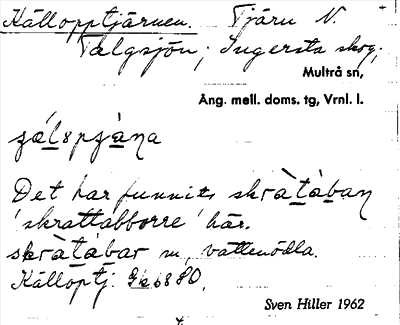 Källopptjärnen. Tjärn N.
Talgsjön, Ingersta skog,
Multrå sn,
Ång. mell. doms. tg, Vrnl. l.
Det har funnits skràtàban
'skrattabborre' här.
skràtàbar m, vattenödla.
Källoptj. 880,
Sven Hiller 1962